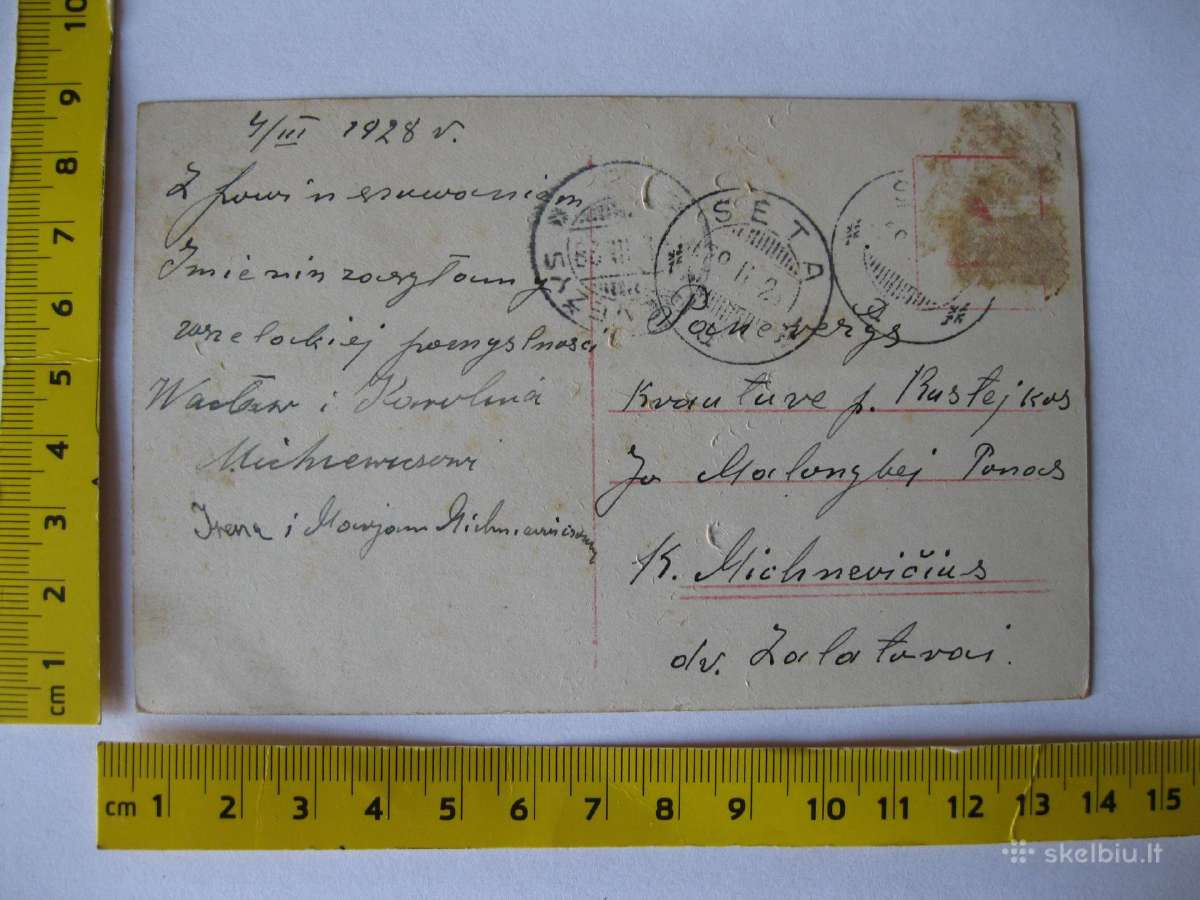 4/III 1928 r.
Z powinszowaniem
Imienin zasyłamy
wszelakiej pomyslnosci
Wacław i Karolina
Michniewiczowi
Irena i Marjam Michniewiczowny
SETA
Panevėžys
Krautuvė p. Rustejkos
Jo Malonybej Ponas
K. Michnevičius
dv. Zalatorai.
cm 1 2 3 4 5 6 7 8 9 10
cm 1 2 3 4 5 6 7 8 9 10 11 12 13 14 15
skelbiu.lt